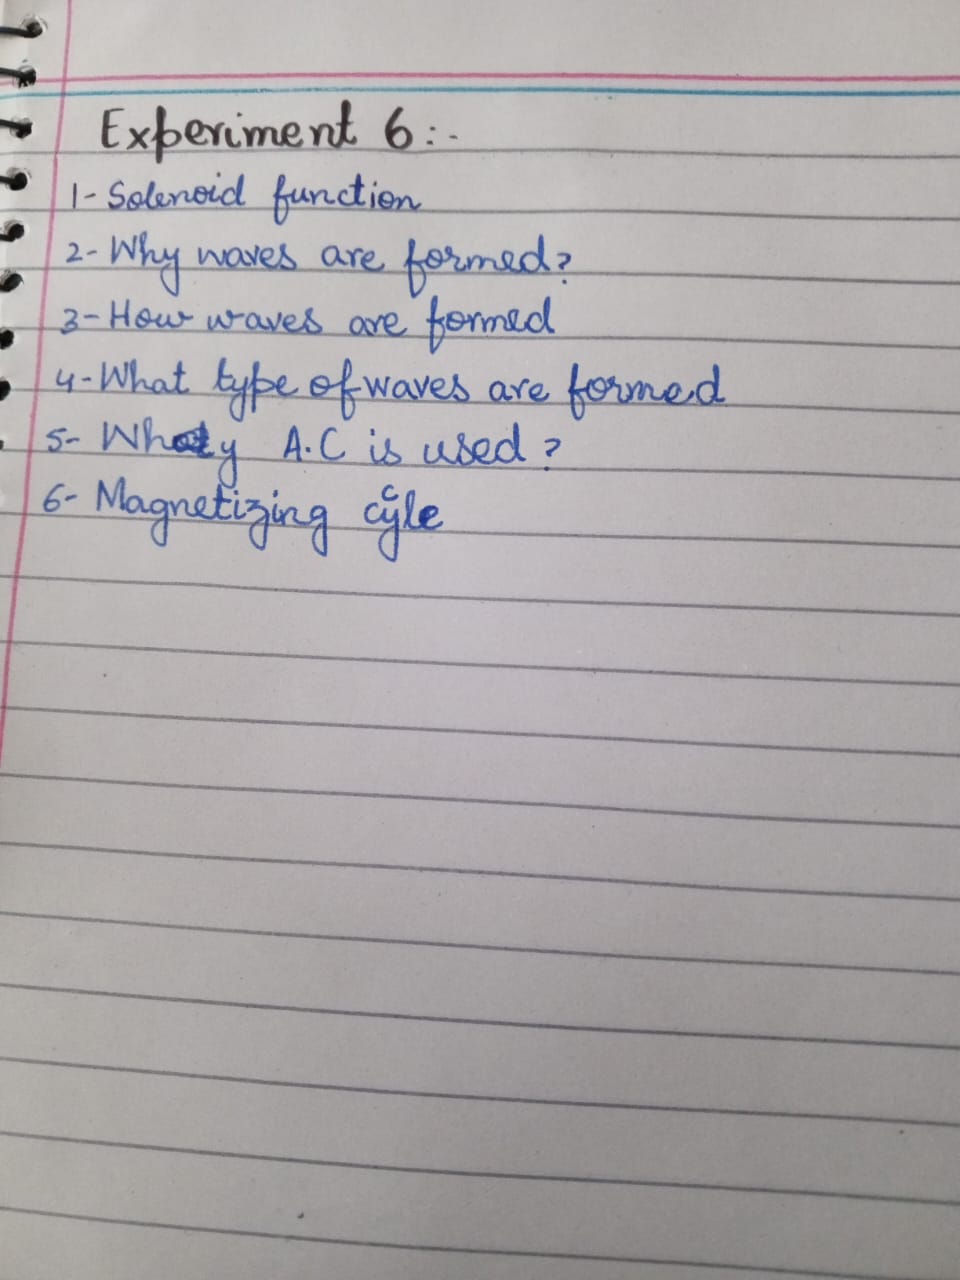 Experiment 6:-
1- Solenoid function
2- Why waves are formed?
3- How waves are formed
4- What type of waves are formed
5- Why A.C is used?
6- Magnetizing cycle